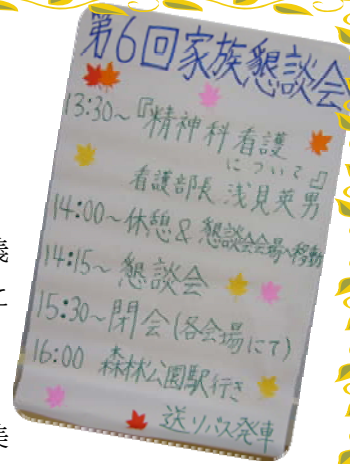 第6回家族懇談会
13:30~『精神科看護
について』
看護部長 浅見英男
14:00~休憩&懇談会会場へ移動
14:15~懇談会
15:30~閉会(各会場にて)
16:00 森林公園駅行き
送りバス発車